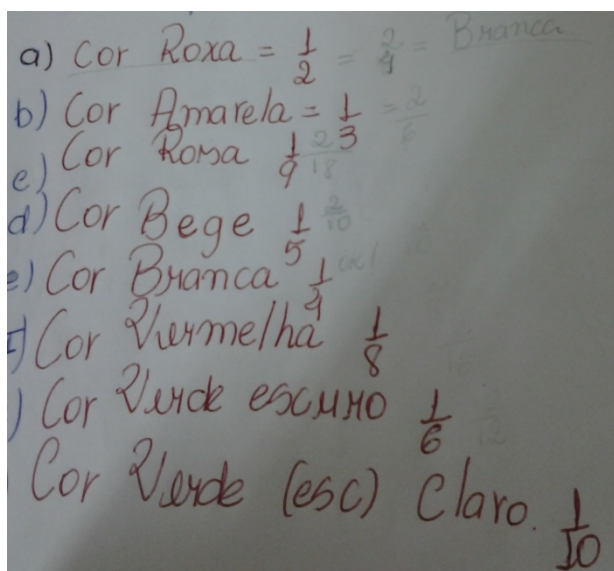 a) Cor Roxa = 1/2 = 2/4 = Branca
b) Cor Amarela = 1/3 = 2/6
c) Cor Rosa 1/9 2/18
d) Cor Bege 1/5 2/10
e) Cor Branca 1/4
Cor Vermelha 1/8
) Cor Verde escuro 1/6 2/12
Cor Verde (esc) Claro. 1/10